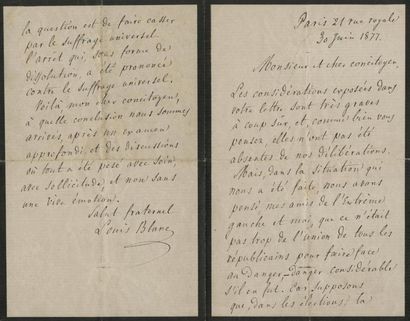 Paris 21 rue royale
30 Juin 1877.
Monsieur et cher concitoyen,
Les considérations exposées dans
votre lettre sont très graves
à coup sûr, et, comme bien vous
pensez, elles n'ont pas été
absentes de nos délibérations.
Mais, dans la situation qui
nous a été faite, nous avons
pensé, mes amis de l'Extrême
gauche et moi, que ce n'était
pas trop de l'union de tous les
républicains pour faire face
au Danger, Danger considérable
s'il en fut. Car supposons
que, dans les élections, la
la question est de faire casser
par le suffrage universel
l'arrêt qui, sous forme de
dissolution, a été prononcé
contre le suffrage universel.
Voilà mon cher concitoyen,
à quelle conclusion nous sommes
arrivés, après un examen
approfondi et des discussions
où tout a été pesé avec soin,
avec sollicitude, et non sans
une vive émotion.
Salut fraternel
Louis Blanc